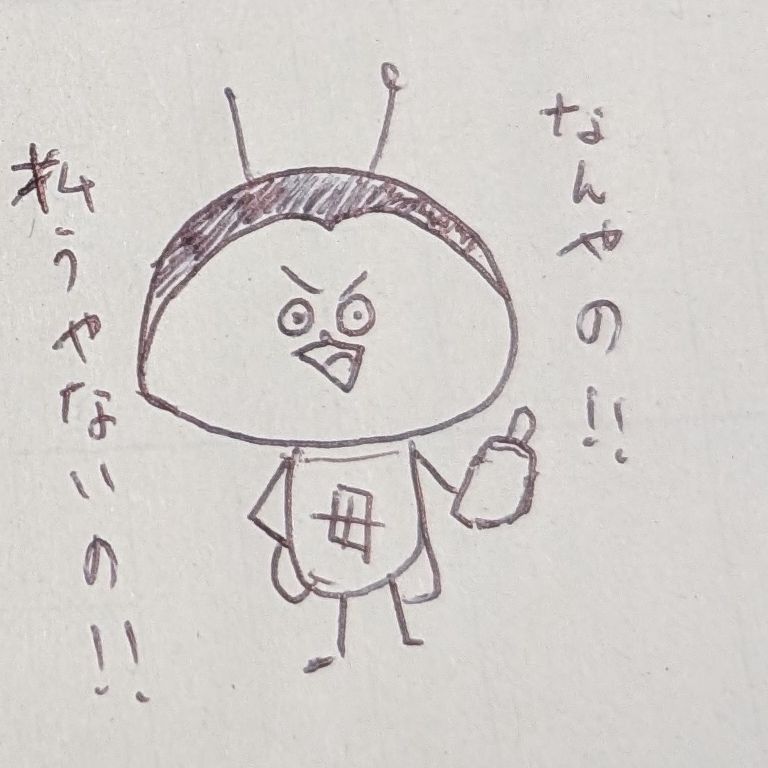 なんやの!!
払うやないの!!
母